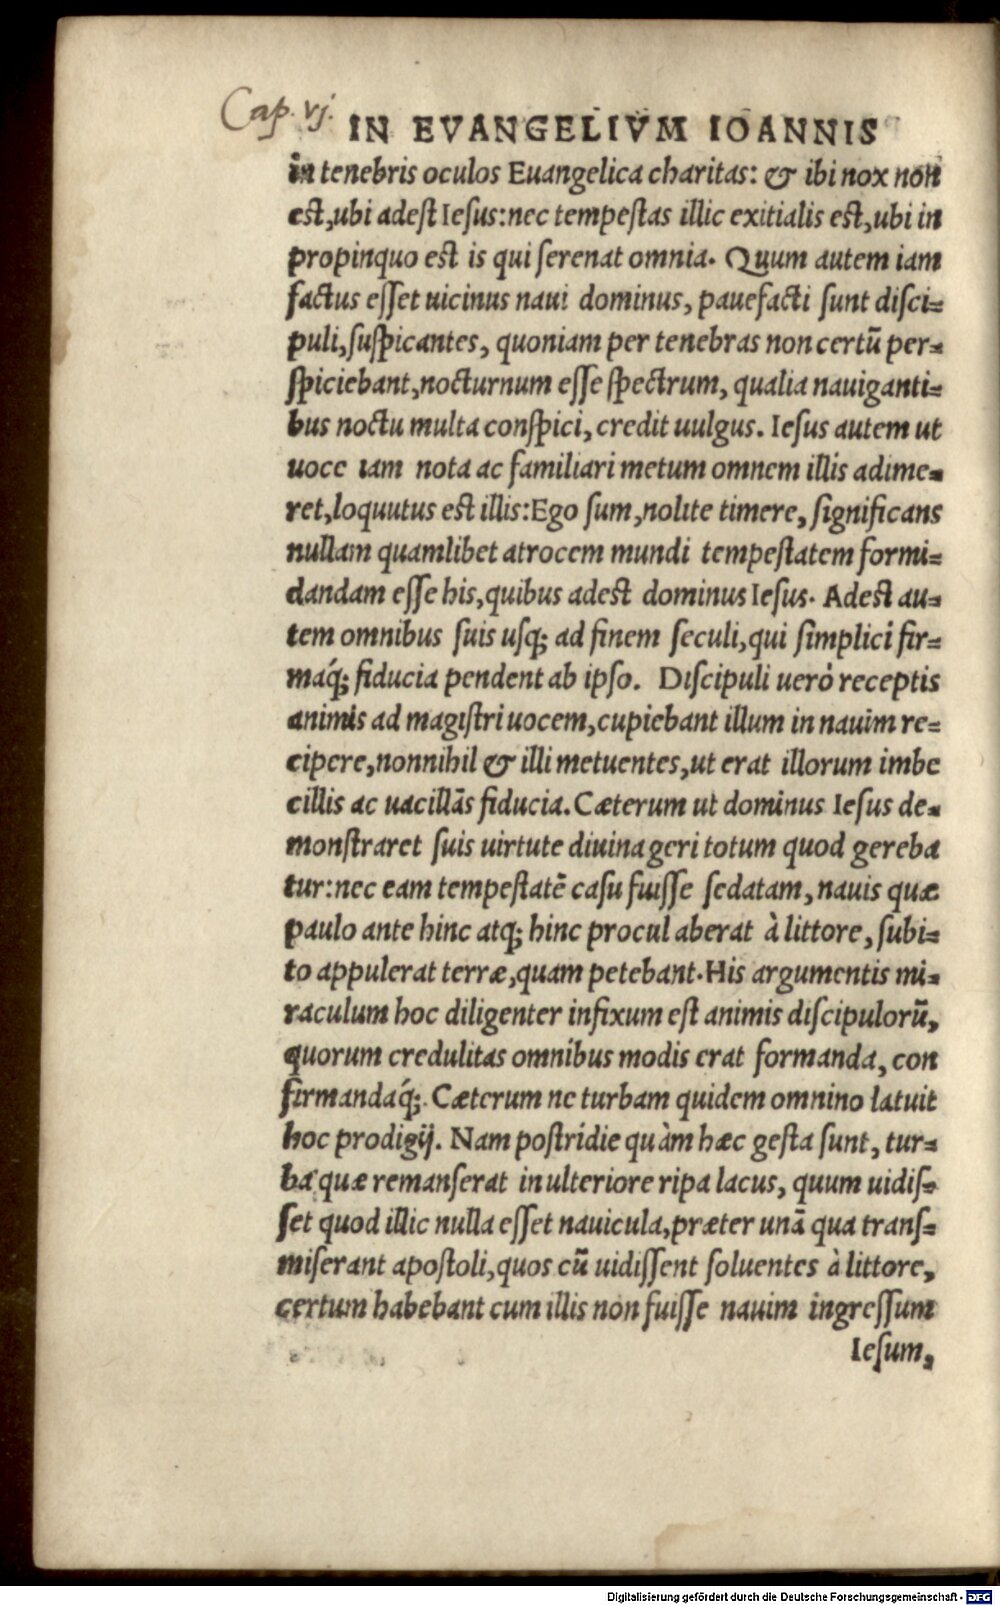 Cap. vj.
IN EVANGELIVM IOANNIS
in tenebris oculos Euangelica charitas: & ibi nox non
est, ubi adest Iesus: nec tempestas illic exitialis est, ubi in
propinquo est is qui serenat omnia. Quum autem iam
factus esset uicinus naui dominus, pauefacti sunt disci-
puli, suspicantes, quoniam per tenebras non certū per-
spiciebant, nocturnum esse spectrum, qualia nauiganti-
bus noctu multa conspici, credit uulgus. Iesus autem ut
uoce iam nota ac familiari metum omnem illis adime-
ret, loquutus est illis: Ego sum, nolite timere, significans
nullam quamlibet atrocem mundi tempestatem formi-
dandam esse his, quibus adest dominus Iesus. Adest au-
tem omnibus suis usq; ad finem seculi, qui simplici fir-
maq́; fiducia pendent ab ipso. Discipuli uerò receptis
animis ad magistri uocem, cupiebant illum in nauim re-
cipere, nonnihil & illi metuentes, ut erat illorum imbe
cillis ac uacillãs fiducia. Cæterum ut dominus Iesus de-
monstraret suis uirtute diuina geri totum quod gereba
tur: nec eam tempestatē casu fuisse sedatam, nauis quæ
paulo ante hinc atq; hinc procul aberat à littore, subi-
to appulerat terræ, quam petebant. His argumentis mi-
raculum hoc diligenter infixum est animis discipulorū,
quorum credulitas omnibus modis erat formanda, con
firmandaq́;. Cæterum ne turbam quidem omnino latuit
hoc prodigij. Nam postridie quàm hæc gesta sunt, tur-
ba quæ remanserat in ulteriore ripa lacus, quum uidis-
set quod illic nulla esset nauicula, præter unā qua trans-
miserant apostoli, quos cū uidissent soluentes à littore,
certum habebant cum illis non fuisse nauim ingressum
Iesum,
Digitalisierung gefördert durch die Deutsche Forschungsgemeinschaft - DFG